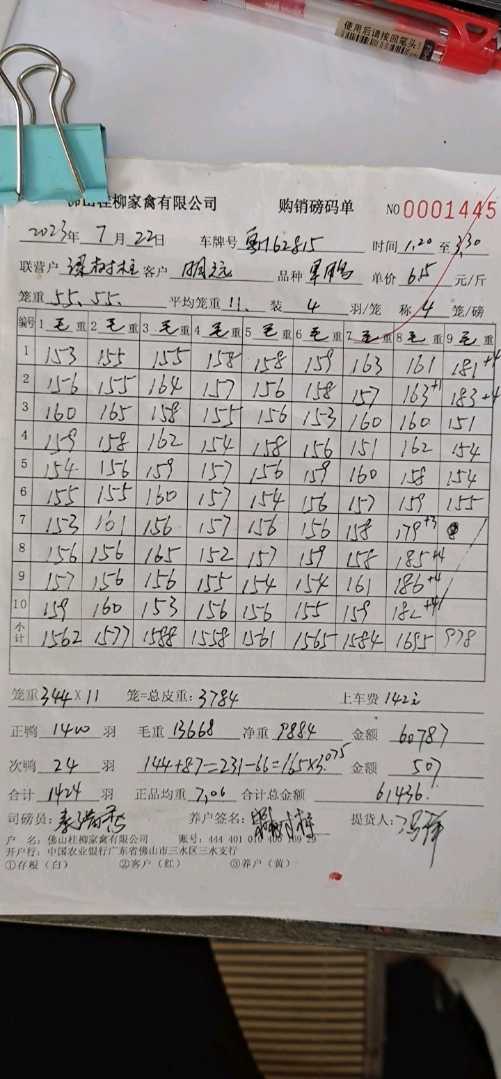 使用后请按回笔头
佛山桂柳家禽有限公司 购销磅码单 NO 0001445
2023年 7月 22日 车牌号 粤J62815 时间 1,20 至 3,30
联营户 客户 明记 品种 单价 6.15 元/斤
笼重 55. 55. 平均笼重 11. 装 4 羽/笼 称 4 笼/磅
编号 1 毛重 2 毛重 3 毛重 4 毛重 5 毛重 6 毛重 7 毛重 8 毛重 9 毛重
1 153 155 155 158 158 159 163 161 181+4
2 156 155 164 157 156 158 157 163+1 183+4
3 160 165 158 155 156 153 160 160 151
4 159 158 162 154 158 156 151 162 154
5 154 156 159 157 156 159 160 158 154
6 155 155 160 157 154 156 157 159 155
7 153 161 156 157 156 156 158 179+3
8 156 156 165 152 157 159 158 185+4
9 157 156 156 155 154 154 161 186+4
10 159 160 153 156 156 155 159 182+4
小计 1562 1577 1588 1558 1561 1565 1584 1695 978
笼重 344 X 11 笼=总皮重: 3784 上车费 142元
正鸭 1400 羽 毛重 13668 净重 9884 金额 60787
次鸭 24 羽 144+87=231-66=165×3.075 金额 507
合计 1424 羽 正品均重 7,06 合计总金额 61436.
司磅员: 养户签名: 提货人:
户 名: 佛山桂柳家禽有限公司 账号: 444 401 010 400 109 29
开户行: 中国农业银行广东省佛山市三水区三水支行
①存根(白) ②客户(红) ③养户(黄)